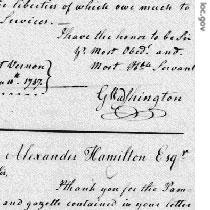 the liberties of which owe much to
Services. —
I have the honor to be Sir
Yr Most Obedt. and
Most Hble Servant
t Vernon
11th. 1787.
GWashington
Alexander Hamilton Esqr.
Thank you for the Pam
and gazette contained in your letter
loc.gov